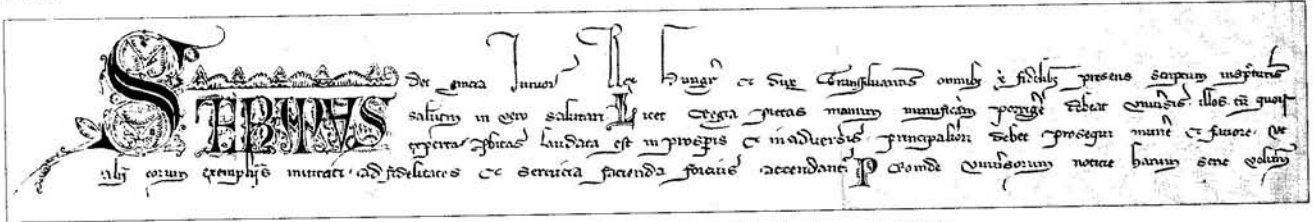 STEPHANVS dei gracia Iunior Rex Hungar̄ et Dux Transsiluanus omnibꝫ xp̄i fidelibꝫ presens scriptum inspc̄turis
salutem in vero salutari Licet Regia pietas manum munificam porrigē debeat vniūsis. illos tn̄ quoꝝ
experta ꝓbitas laudata est in prosꝑis et in aduersis. principaliori debet prosequi munē et fauore. vt
alij eorum exemplis inuitati. ad fidelitates et seruicia facienda forcius accendant᷑ Proinde vniūsorum noticie harum serie volumꝰ